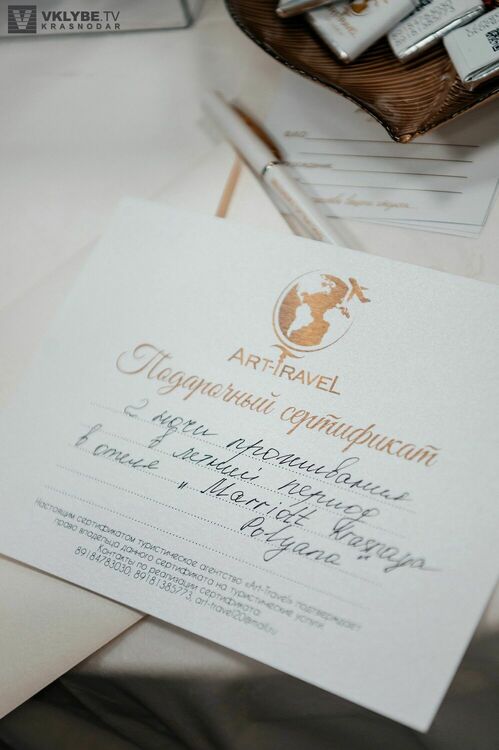 VKLYBE.TV
KRASNODAR
ART-TRAVEL
Подарочный сертификат
2 ночи проживания
в летний период
в отеле "Marriott Krasnaya
Polyana"
Настоящим сертификатом туристическое агентство «Art-Travel» подтверждает
право владельца данного сертификата на туристические услуги.
Контакты по реализации сертификата:
89184783030, 89181385773, art-travel20@mail.ru